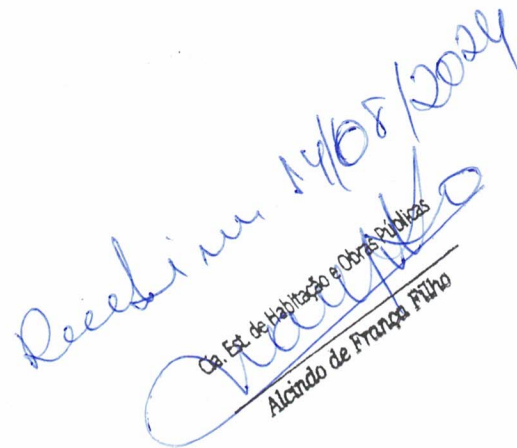 Recebi em 14/08/2024
Cia. Est. de Habitação e Obras Públicas
Alcindo de França Filho